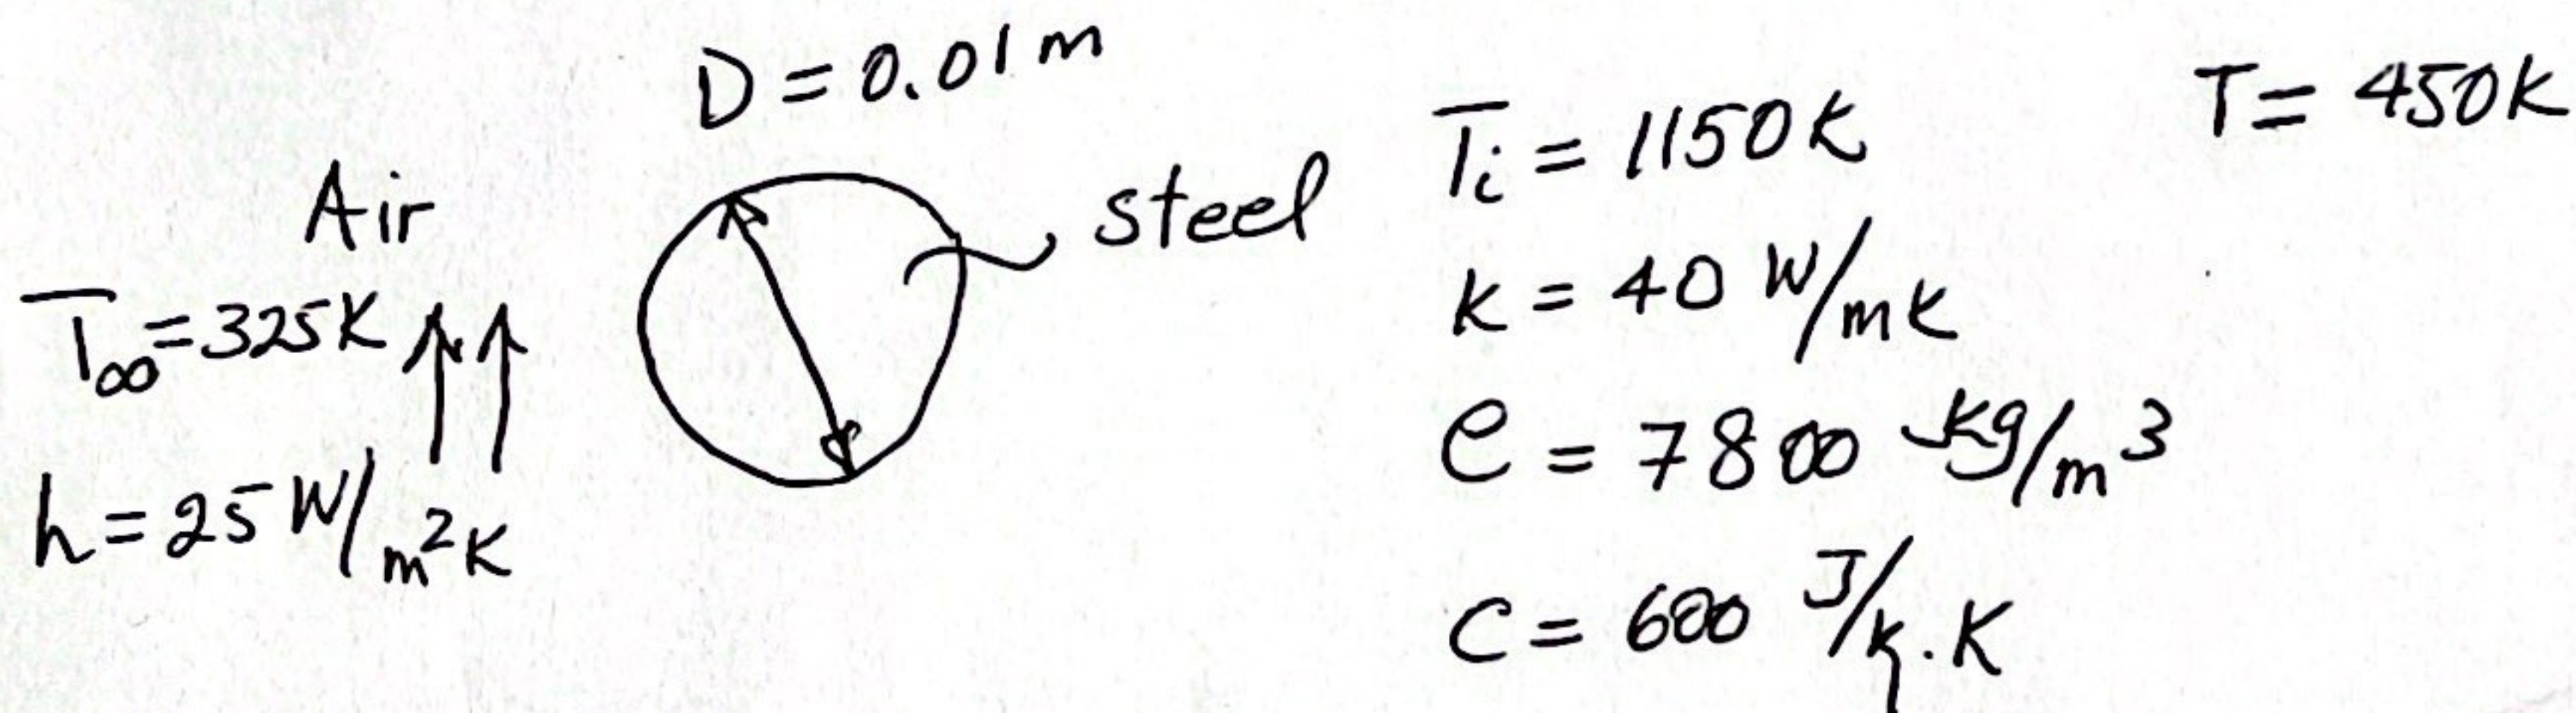 D = 0.01 m
Air
T∞ = 325K
h = 25 W/m²K
steel
Ti = 1150K
k = 40 W/mK
ρ = 7800 kg/m³
C = 600 J/kg.K
T = 450K